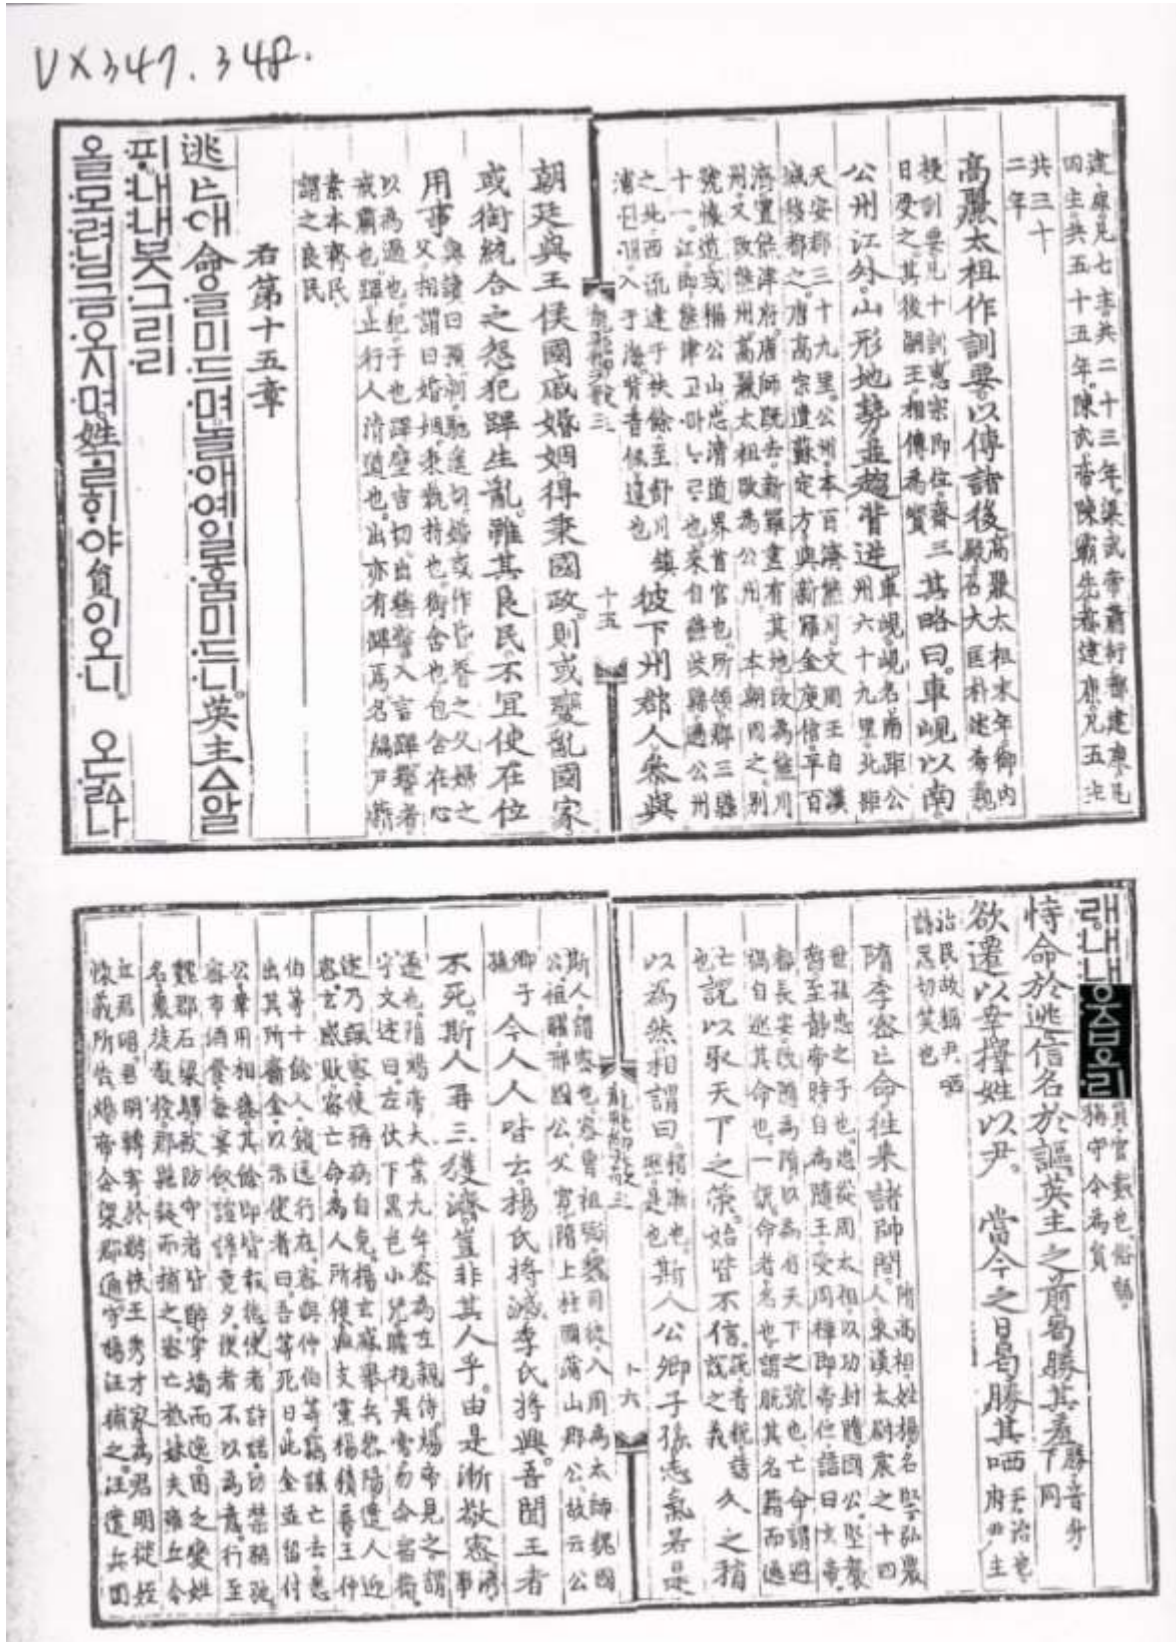 VX347.348.
建康凡七主共二十三年。梁武帝蕭衍都建康凡
四主共五十五年。陳武帝陳霸先都建康凡五主
共三十
二年
高麗太祖作訓要以傳諸後
高麗太祖末年御內
殿召大匡朴述希親
授訓要凡十訓惠宗即位齋三
日受之。其後嗣王相傳為寶
其略曰。車峴以南
公州江外。山形地勢並趨背逆
車峴峴名南距公
州六十九里北距
天安郡三十九里。公州本百濟熊川文周王自漢
城移都之。唐高宗遣蘇定方與新羅金庾信平百
濟置熊津府唐師旣去新羅盡有其地改為熊川
州又改熊州高麗太祖改為公州 本朝因之別
號懷道或稱公山忠清道界首官也所領郡三縣
十一。江即熊津고마ᄂᆞᄅᆞ也來自 過公州
之北西流達于扶餘至舒川鎮
浦 入于海。背音佩違也
彼下州郡人參與
十五
朝廷與王侯國戚婚姻得秉國政。則或變亂國家
或銜統合之怨犯蹕生亂。雖其良民。不宜使在位
用事
與讀曰預 婚或作昏昏之父婦之
父相謂曰婚姻秉執持也銜含也包含在心
以為過也犯干也蹕壁吉切出稱警入言蹕警者
戒肅也。蹕止行人清道也。出亦有蹕焉名編戶籍
素本齊民
謂之良民
右第十五章
逃亡애命을미드며놀애예일훔미드니。英主ㅿ알
ᄑᆡ내내붓그리리
올모려님금오시며姓ᄀᆞᆯᄒᆡ야員이오니。 오ᄂᆞᆳ나
래내내웃ᄫᅳ리
員官數也。俗語。
稱守令為員
恃命於逃信名於謳英主之前曷勝其羞
勝音升。
下同
欲遷以幸擇姓以尹。 當今之日曷勝其哂
尹治也。
府尹主
治民故稱尹。哂
詩忍切笑也
隋李密亡命往來諸帥間。
隋高祖姓楊名堅弘農
人東漢太尉震之十四
世孫忠之子也忠從周太祖以功封隨國公堅襲
爵至靜帝時自為隨王受周禪即帝位諡曰文帝。
都長安改隨為隋以為有天下之號也。亡命謂避
禍自逃其命也。一說命者名也謂脫其名籍而逃
亡
也
說以取天下之策。始皆不信。
說音稅
說之義
久之稍
以為然相謂曰。
稍漸也。
然是也
斯人公卿子孫志氣若是
十六
斯人謂密也密曾祖弼魏司徒入周為太師魏國
公祖曜邢國公父寬隋上柱國蒲山郡公。故云公
卿子
孫
今人人皆云楊氏將滅李氏將興。吾聞王者
不死。斯人再三獲濟豈非其人乎。由是漸敬密
濟事
遂也隋煬帝大業九年密為左親侍煬帝見之謂
宇文述曰左仗下黑色小兒瞻視異常勿令宿衛
述乃諷密使稱病自免楊玄感舉兵 遣人迎
密玄感敗密亡命為人所獲與支黨楊積善王仲
伯等十餘人鎖送行在密與仲伯等竊謀亡去。悉
出其所齎金以示使者曰吾等死日此金並留付
公幸用相瘞其餘即皆報德使者許諾防禁稍弛
密市酒食每宴飲諠譁竟夕使者不以為意行至
魏郡石梁驛飲防守者皆醉穿墻而逸 變姓
名 徒教授郡縣疑而捕之密亡抵妹夫雍丘令
丘君明。君明轉寄於游俠王秀才家 君明從姪
懷義所告煬帝令梁郡通守楊汪捕之汪遣兵圍